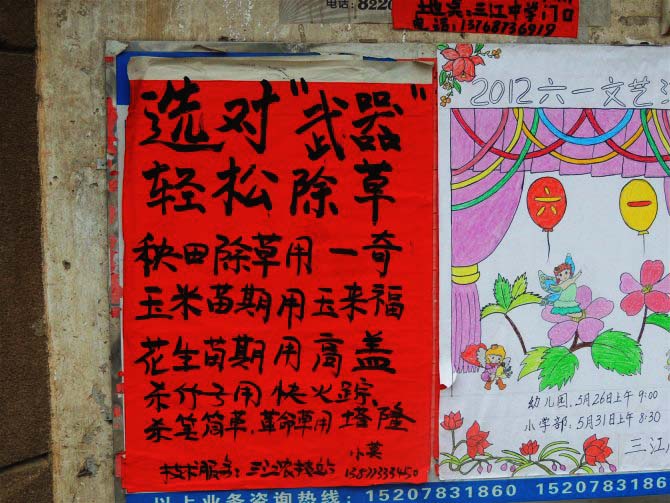 电话:8220
地点:三江中学门口
电话:13768736919
选对"武器"
轻松除草
秧田除草用一奇
玉米苗期用玉来福
花生苗期用高盖
杀竹子用快火踪
杀笔筒草,革命草用塔隆
小英
技术服务:三江农技站 15877333450
2012六一文艺
六一
幼儿园.5月26日上午9:00
小学部:5月31日上午8:30
三江
以上业务咨询热线:15207831860 152078